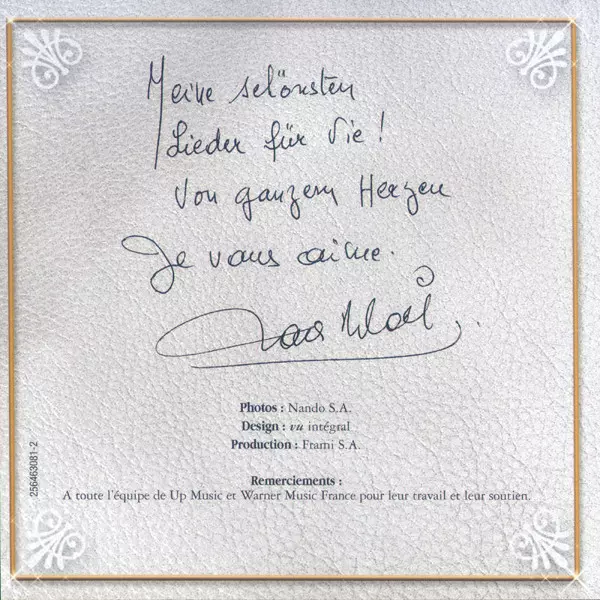 Meine schönsten
Lieder für Sie!
Von ganzem Herzen
Je vous aime.
Photos : Nando S.A.
Design : vu intégral
Production : Frami S.A.
256463081-2
Remerciements :
A toute l'équipe de Up Music et Warner Music France pour leur travail et leur soutien.